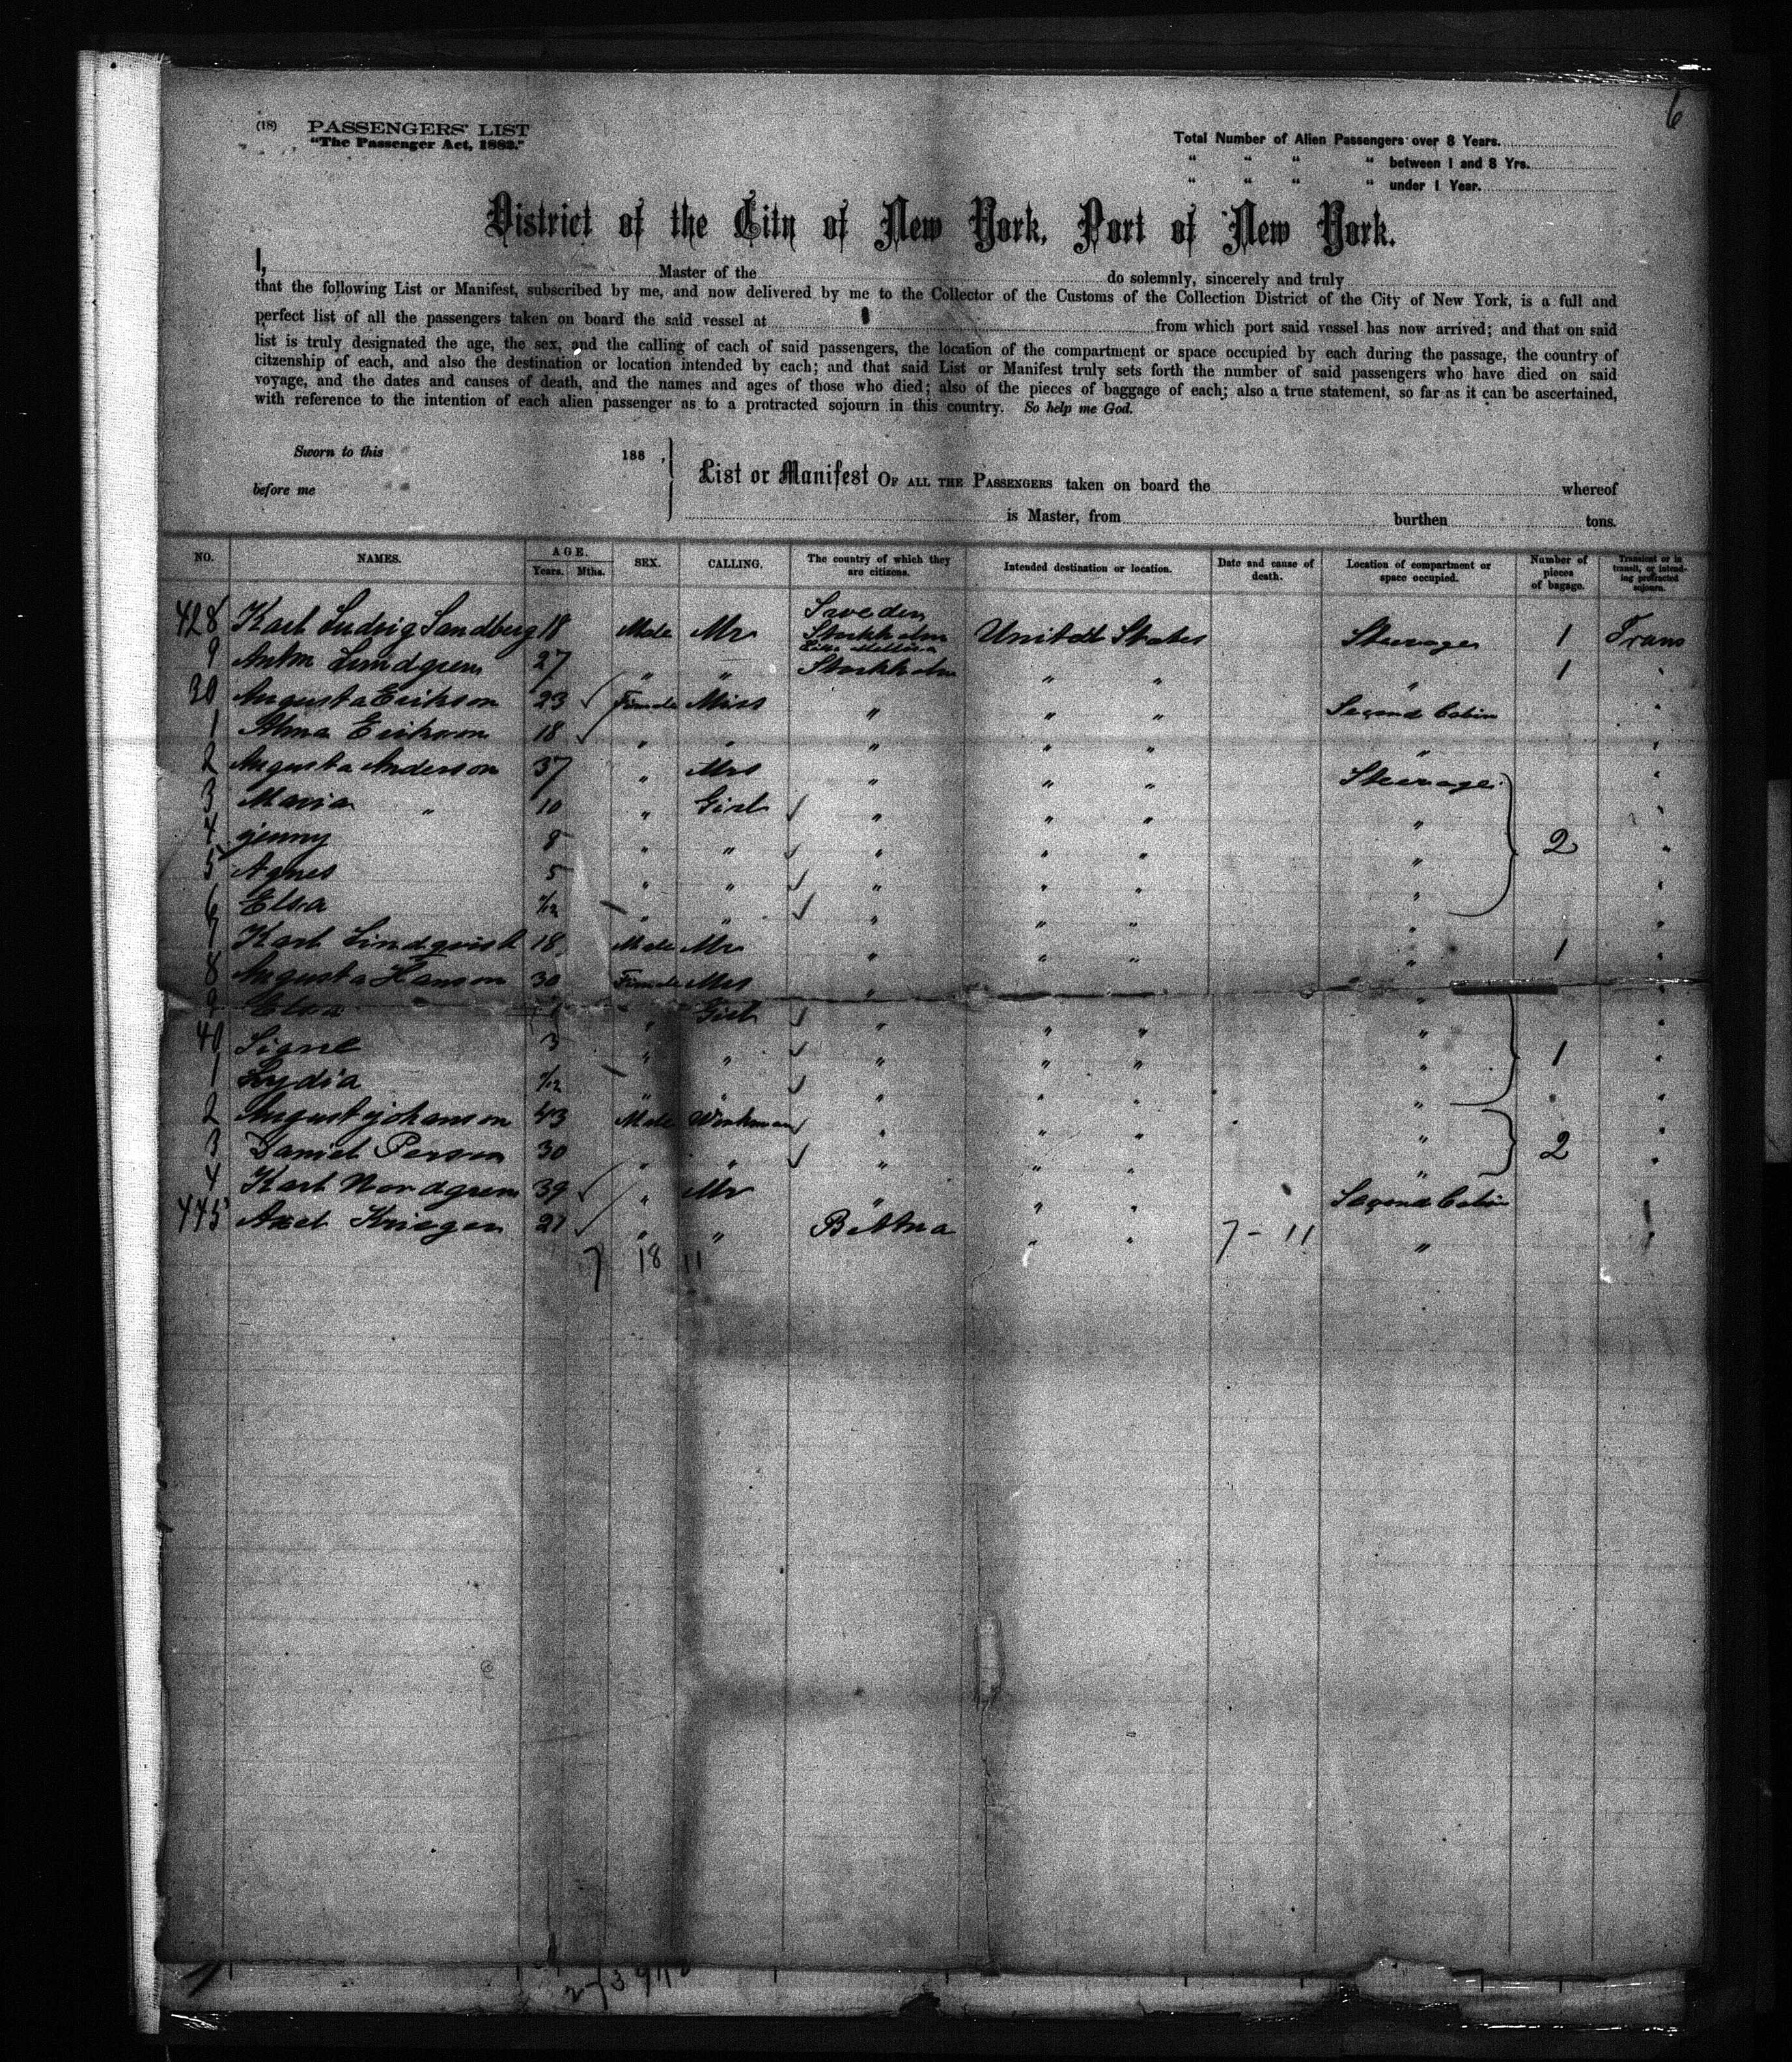 6
(18) PASSENGERS' LIST
"The Passenger Act, 1882."
Total Number of Alien Passengers over 8 Years.
" " " " between 1 and 8 Yrs.
" " " " under 1 Year.
District of the City of New York, Port of New York.
I, Master of the do solemnly, sincerely and truly
that the following List or Manifest, subscribed by me, and now delivered by me to the Collector of the Customs of the Collection District of the City of New York, is a full and
perfect list of all the passengers taken on board the said vessel at from which port said vessel has now arrived; and that on said
list is truly designated the age, the sex, and the calling of each of said passengers, the location of the compartment or space occupied by each during the passage, the country of
citzenship of each, and also the destination or location intended by each; and that said List or Manifest truly sets forth the number of said passengers who have died on said
voyage, and the dates and causes of death, and the names and ages of those who died; also of the pieces of baggage of each; also a true statement, so far as it can be ascertained,
with reference to the intention of each alien passenger as to a protracted sojourn in this country. So help me God.
Sworn to this 188 ,
before me
List or Manifest OF ALL THE PASSENGERS taken on board the whereof
is Master, from burthen tons.
NO. NAMES. AGE. Years. Mths. SEX. CALLING. The country of which they are citizens. Intended destination or location. Date and cause of death. Location of compartment or space occupied. Number of pieces of bagage. Transient or in transit, or intending protracted sojourn.
Sweden
428 Karl Ludvig Sandberg 18 Male Mr Stockholm United States Steerage 1 Trans
9 Anton Lundgren 27 " " Stockholm " " " 1 "
30 Augusta Erikson 23 Female Miss " " " Second Cabin "
1 Alma Erikson 18 " " " " " " "
2 Augusta Anderson 37 " Mrs " " " Steerage "
3 Maria " 10 " Girl " " " " "
4 jenny 8 " " " " " " 2 "
5 Agnes 5 " " " " " " "
6 Elsa /12 " " " " " " "
7 Karl Lindqvist 18 Male Mr " " " " 1 "
8 Augusta Hanson 30 Female Mrs " " "
9 Elsa " Girl " " " " "
40 Signe 3 " " " " " " 1 "
1 Lydia /12 " " " " " " "
2 August johanson 43 Male Workman " " " " "
3 Daniel Person 30 " " " " " " 2 "
4 Karl Nordgren 39 " Mr " " " Second Cabin
445 Axel Krieger 27 " " " " 7 - 11 "
7 18 11